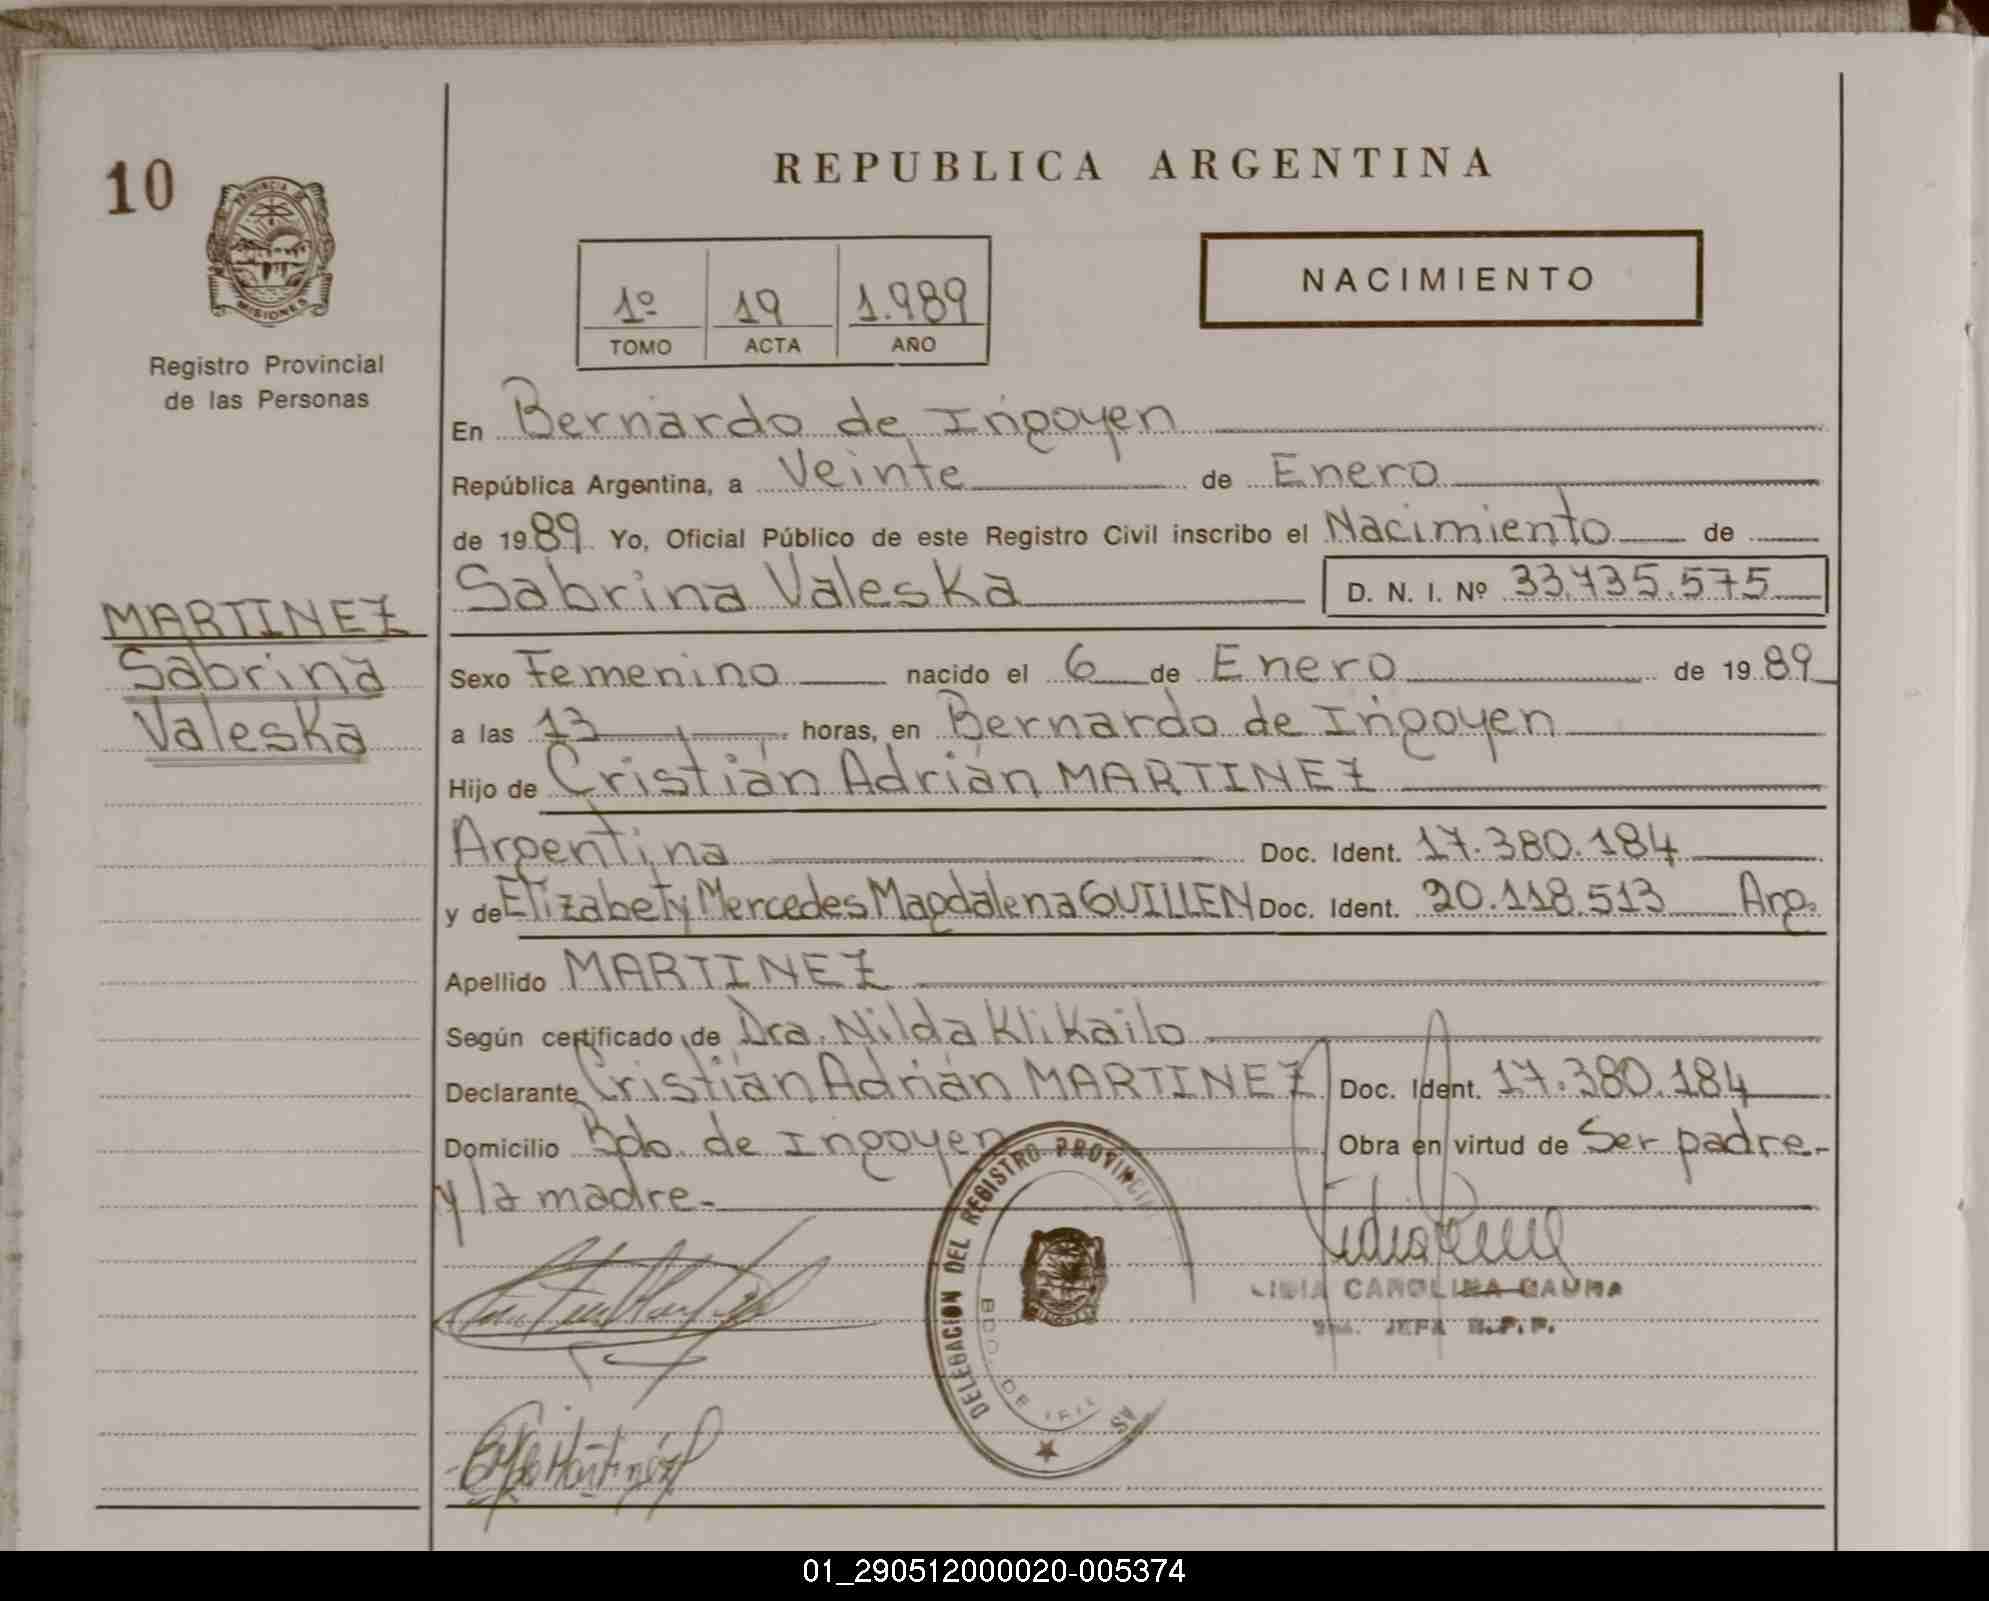 10
PROVINCIA DE
MISIONES
Registro Provincial
de las Personas
REPUBLICA ARGENTINA
NACIMIENTO
1º 19 1.989
TOMO ACTA AÑO
En Bernardo de Irigoyen
República Argentina, a Veinte de Enero
de 1989 Yo, Oficial Público de este Registro Civil inscribo el Nacimiento de
Sabrina Valeska D. N. I. Nº 33.735.575
MARTINEZ
Sabrina
Valeska
Sexo Femenino nacido el 6 de Enero de 1989
a las 13 horas, en Bernardo de Irigoyen
Hijo de Cristián Adrián MARTINEZ
Argentina Doc. Ident. 17.380.184
y de Elizabety Mercedes Magdalena GUILLEN Doc. Ident. 20.118.513 Arg.
Apellido MARTINEZ
Según certificado de Dra. Nilda Klikailo
Declarante Cristián Adrián MARTINEZ Doc. Ident. 17.380.184
Domicilio Bdo. de Irigoyen Obra en virtud de Ser padre-
y la madre-
DELEGACION DEL REGISTRO PROVINCIAL
BDO. DE IRI AS
LIDIA CAROLINA GAUNA
JEFA R.P.P.
Martinez
01_290512000020-005374